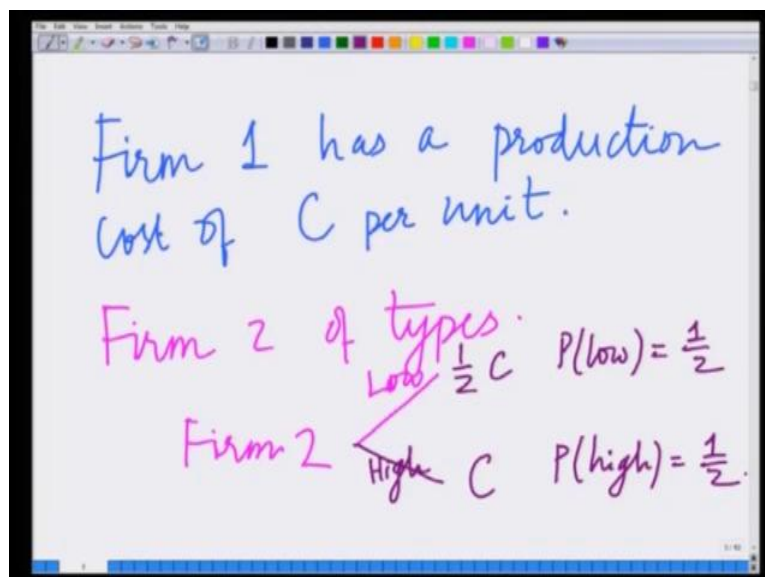 File Edit View Insert Actions Tools Help
Firm 1 has a production
cost of C per unit.
Firm 2 of types.
Low 1/2 C P(low) = 1/2
Firm 2
High C P(high) = 1/2.